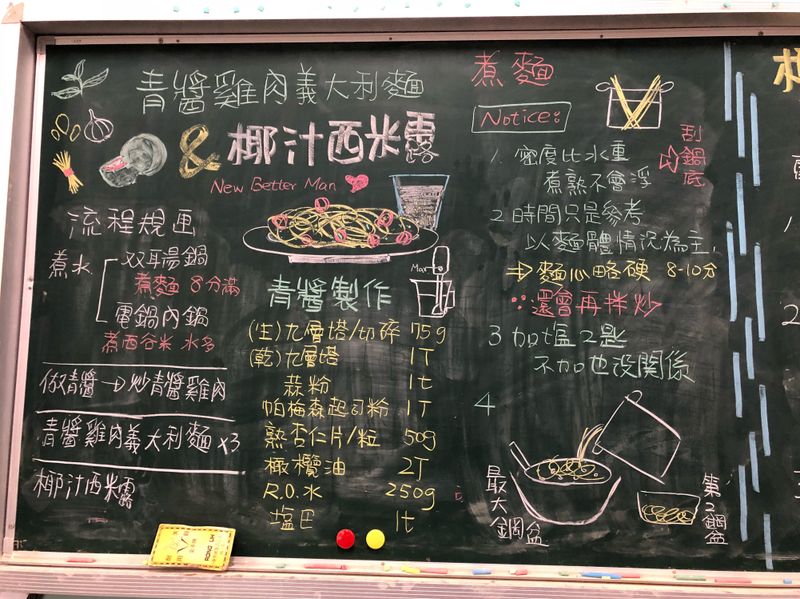 青醬雞肉義大利麵
& 椰汁西米露
New Better Man
流程規画
煮水
双耳湯鍋
煮麵 8分滿
電鍋內鍋
煮西谷米 水多
做青醬 → 炒青醬雞肉
青醬雞肉義大利麵 x3
椰汁西米露
Max
青醬製作
(生)九層塔/切碎 75g
(乾)九層塔 1T
蒜粉 1t
帕梅森起司粉 1T
熟杏仁片/粒 50g
橄欖油 2T
R.O.水 250g
塩巴 1t
煮麵
Notice:
1. 密度比水重
煮熟不會浮
⇨ 刮鍋底
2 時間只是參考
以麵體情況為主,
⇒ 麵心略硬 8-10分
∵還會再拌炒
3 加塩2匙
不加也没關係
4
最大鋼盆
第2鋼盆